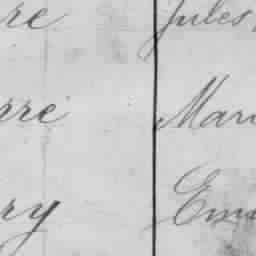 re Jules
rre Mar
ry Em